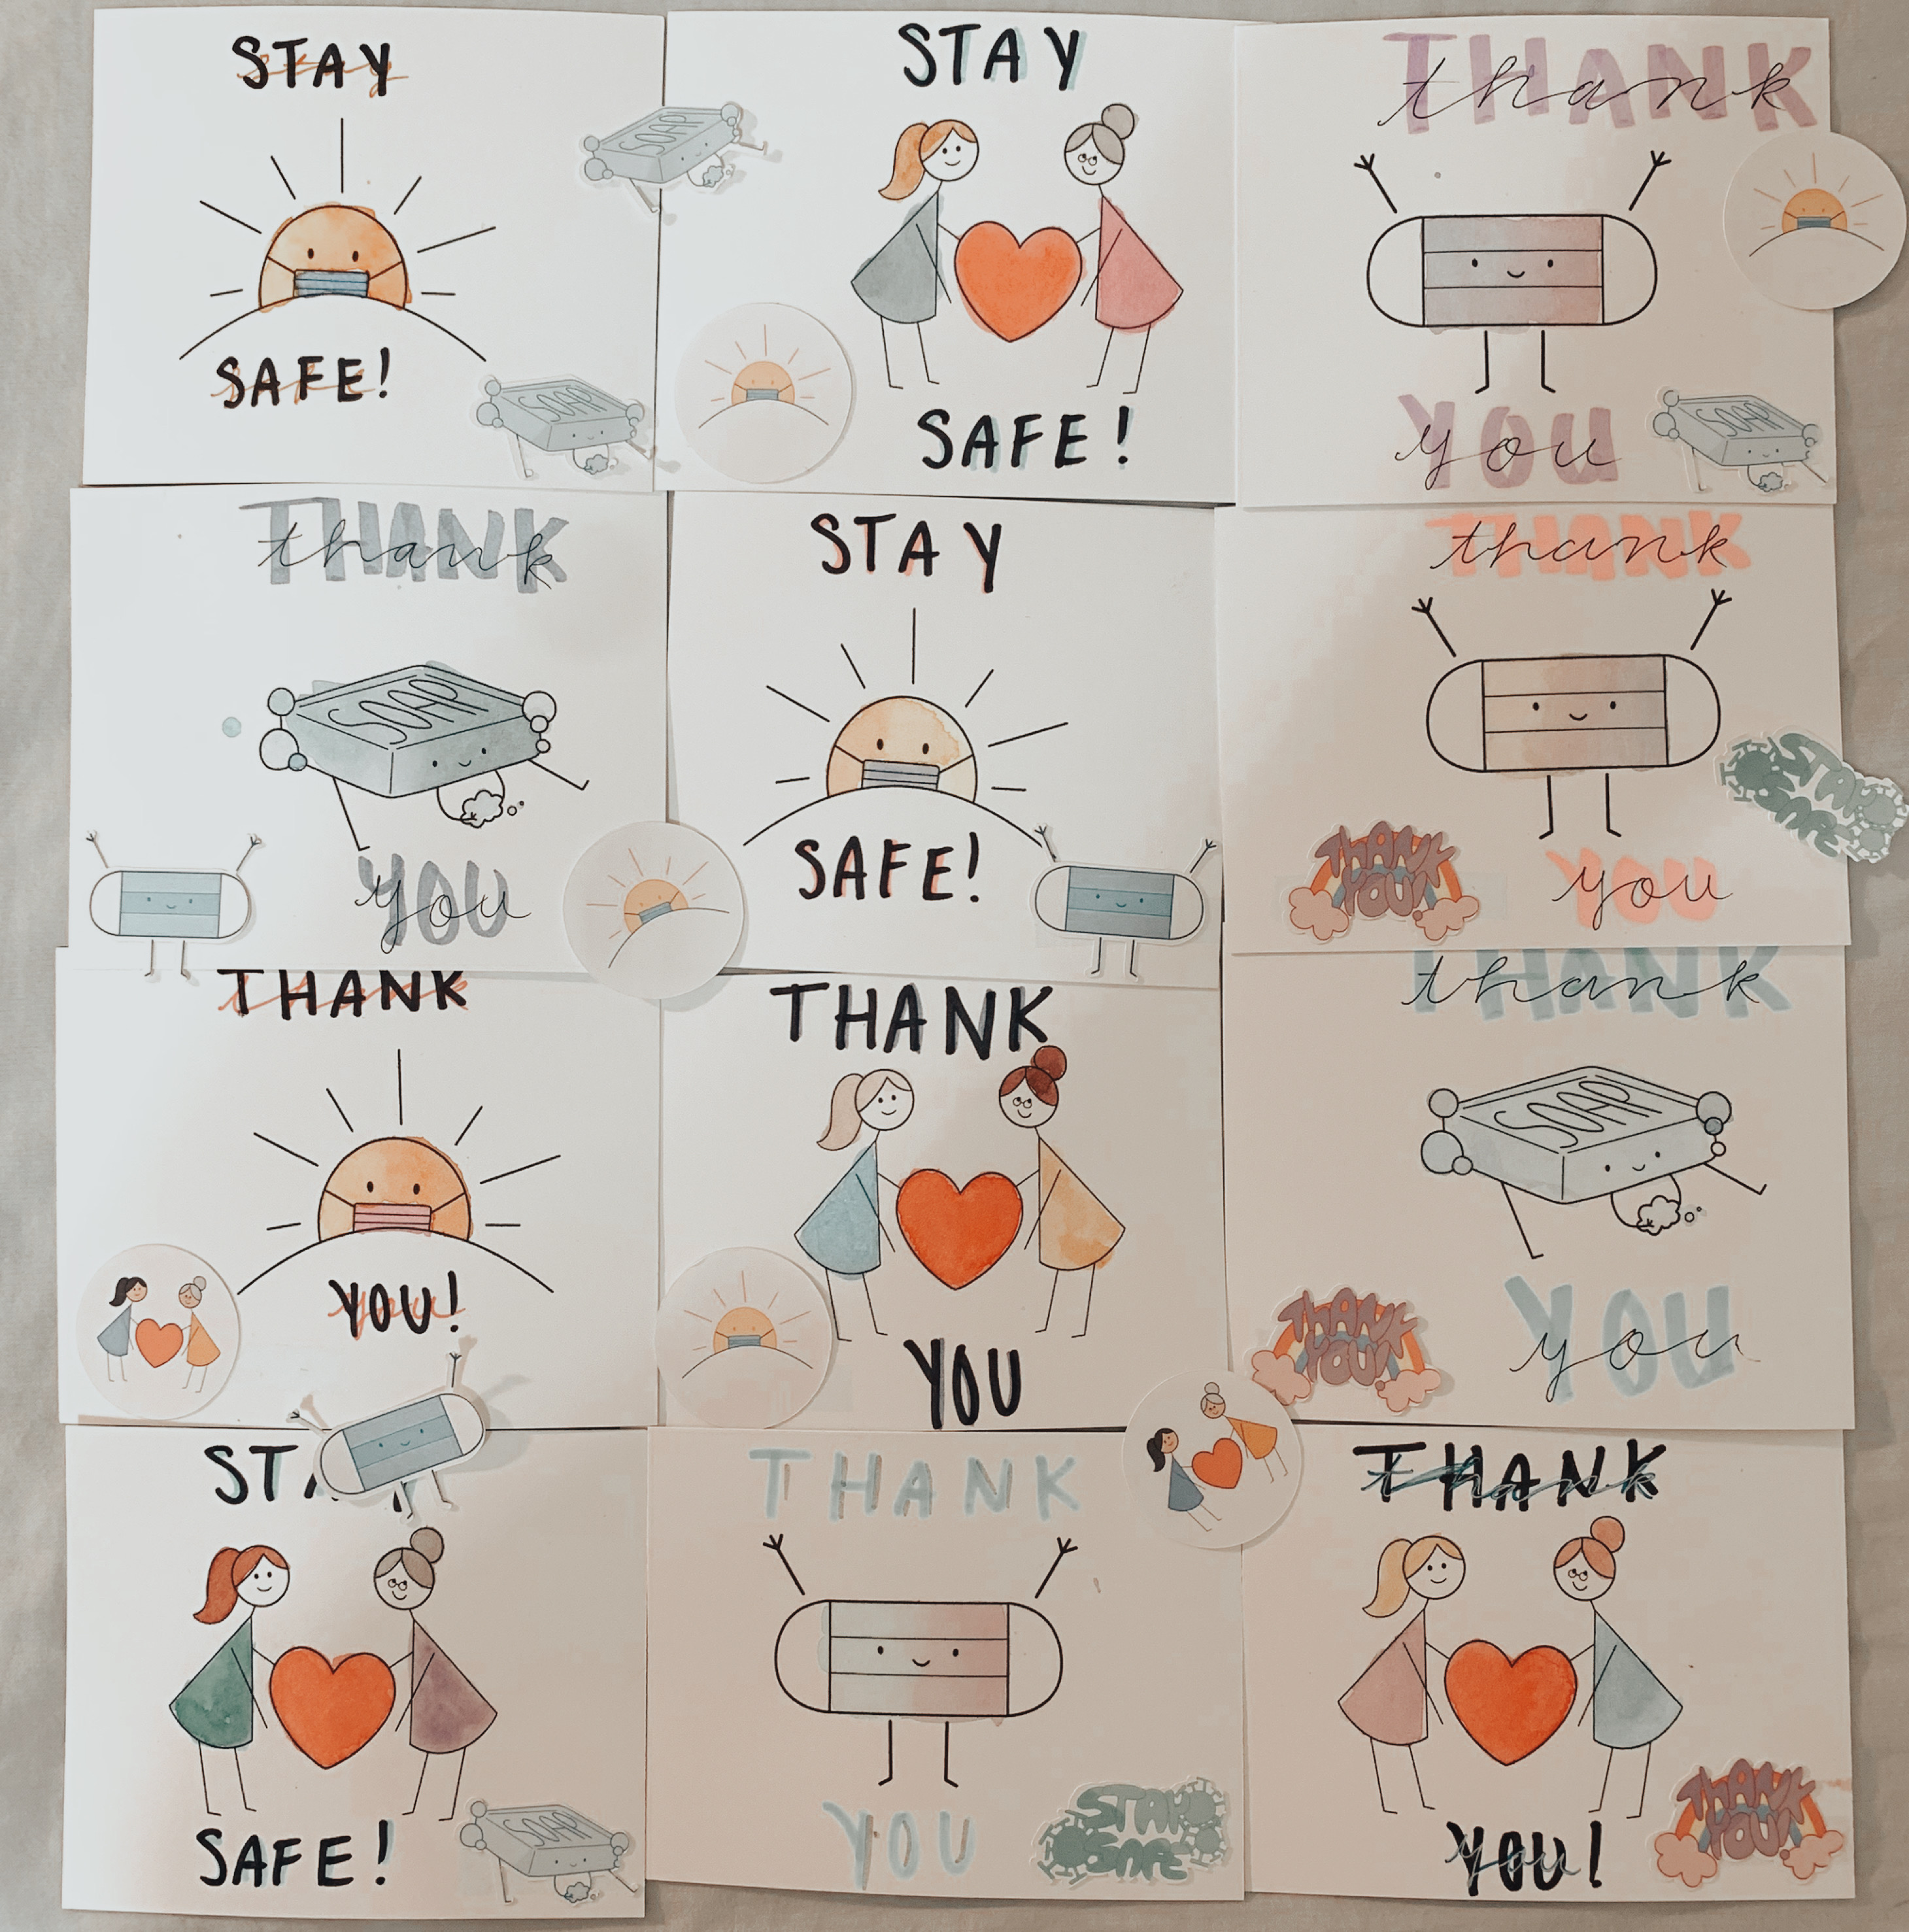 STAY
stay
SOAP
SAFE!
safe
SOAP
STAY
SAFE!
THANK
thank
YOU
you
SOAP
THANK
thank
SOAP
YOU
you
STAY
SAFE!
THANK
thank
STAY
SAFE
THANK
YOU!
YOU
you
THANK
thank
YOU!
you
THANK
YOU
THANK
thank
SOAP
THANK
YOU!
YOU
you
SAFE!
SOAP
THANK
YOU
STAY
SAFE
THANK
thank
YOU!
you
THANK
YOU!